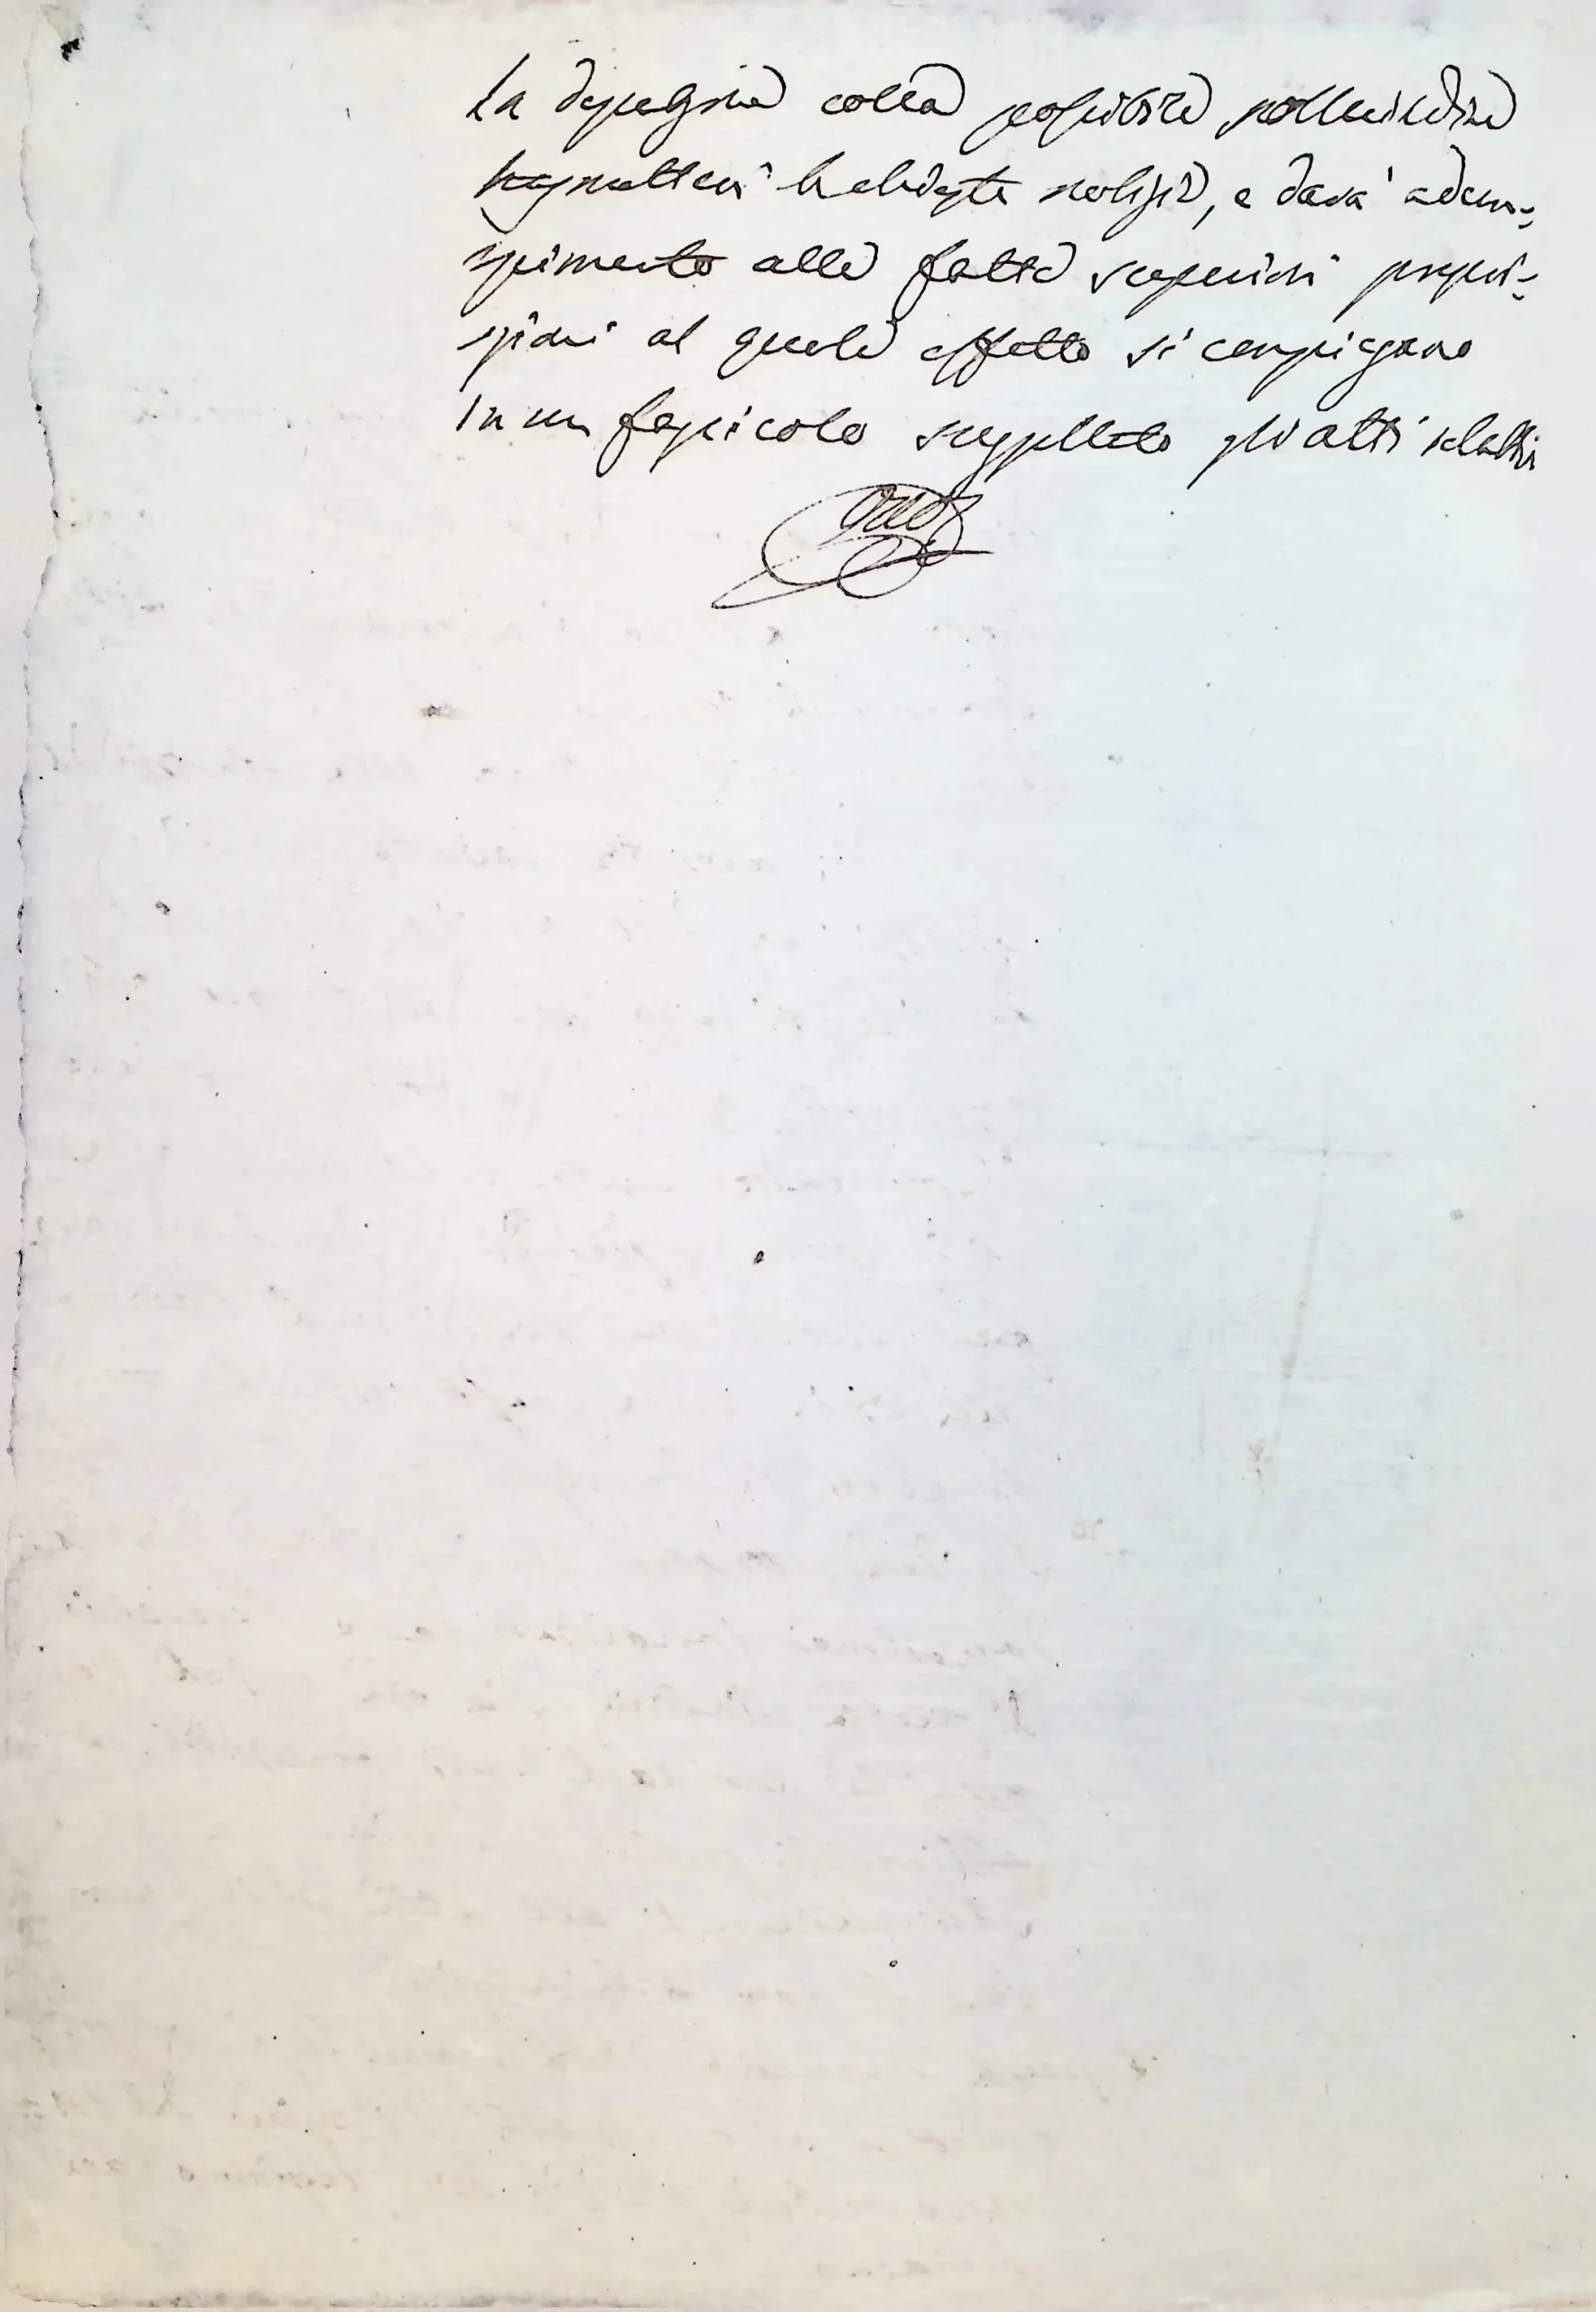 La medesima colla possibile sollecitudine
trasmetterà le chieste notizie, e darà adem=
pimento alle fatte superiori preposi=
zioni al quale effetto si compiegano
in un fascicolo suggellato gli atti relativi